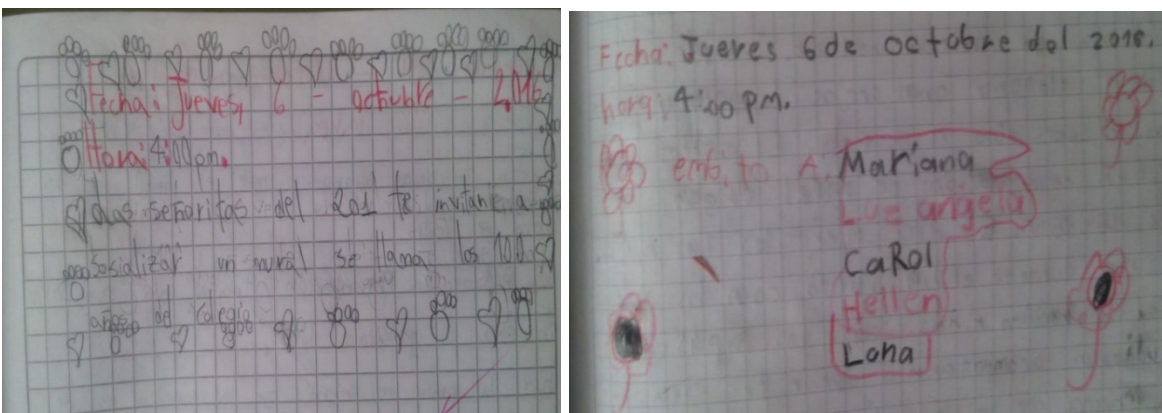 Fecha: Jueves, 6 - octubre - 2.016
Hora: 4:00 pm.
Las señoritas del 201 te invitan a
sosializar un mural se llama los 100
años del colegio
Fecha: Jueves 6 de octobre del 2016.
hora: 4:00 pm.
embito A. Mariana
Luz angela
CaRol
Hellen
Lana